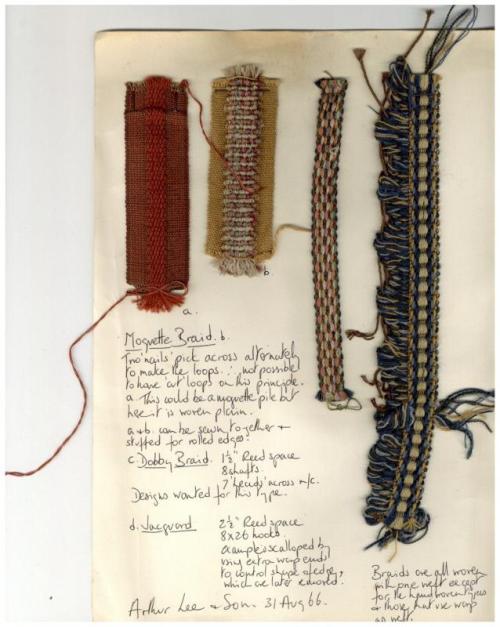 a.
b
Moquette Braid. b.
Two 'nails' pick across alternately
to make the loops. ∴ not possible
to have 'cut' loops on this principle.
a. This could be a moquette pile but
here it is woven plain.
a & b. can be sewn together &
stuffed for rolled edges.
c. Dobby Braid. 1½" Reed space
8 shafts.
7 'heads' across m/c.
Designs wanted for this type.
d. Jacquard 2½" Reed space
8x26 hooks.
example is scalloped by
using extra warp ends
to control shape of edge,
which are later removed.
Arthur Lee & Son. 31 Aug 66.
Braids are all woven
with one weft except
for the hand woven types
& those that use warp
as weft.